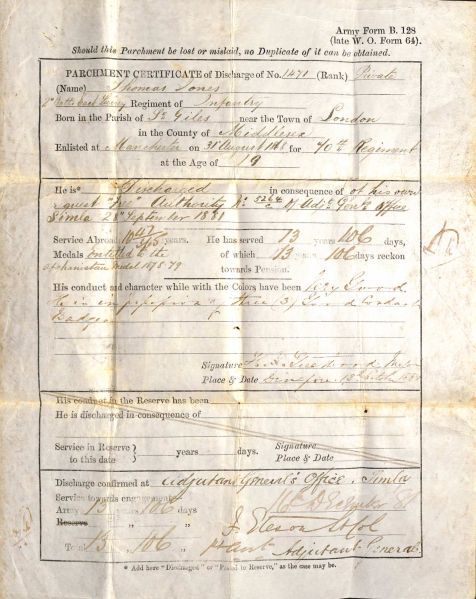 Army Form B. 128
(late W. O. Form 64).
Should this Parchment be lost or mislaid, no Duplicate of it can be obtained.
PARCHMENT CERTIFICATE of Discharge of No. 1471 (Rank) Private
(Name) Thomas Jones
Regiment of Infantry
Born in the Parish of St Giles near the Town of London
in the County of Middlesex
Enlisted at Manchester on 31 August 1868 for 70th Regiment
at the Age of 19
He is* Discharged in consequence of at his own
request Authority No 5264 of Adjt Genl's Office
Simla 28 September 1881
Service Abroad years. He has served 13 years 106 days,
Medals entitled to the of which 13 years 106 days reckon
Afghanistan Medal 1878-79 towards Pension.
His conduct and character while with the Colors have been Very Good
He is in possession of three (3) Good Conduct
Badges
Signature Major
Place & Date
His conduct in the Reserve has been
He is discharged in consequence of
Service in Reserve to this date } years days. Signature
Place & Date
Discharge confirmed at Adjutant General's Office, Simla
Service towards engagement:
Army 13 years 106 days
Reserve " "
Total 13 " 106 "
Adjutant General
* Add here "Discharged" or "Passed to Reserve," as the case may be.